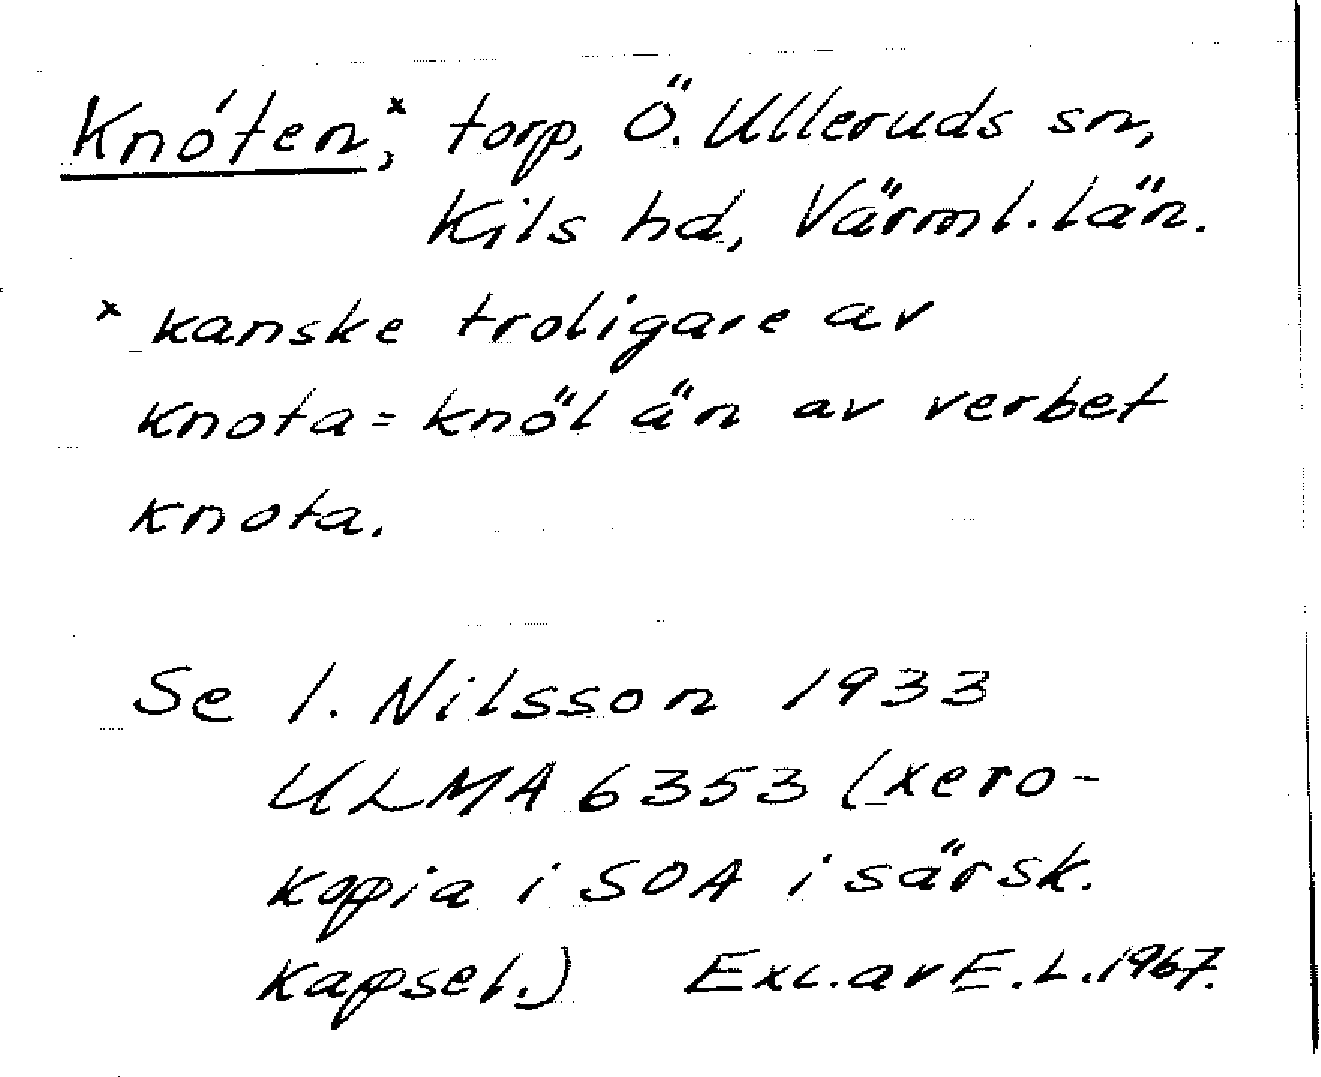 Knóten,ˣ torp, Ö. Ulleruds sn,
Kils hd, Värml. län.
ˣ kanske troligare av
knota = knöl än av verbet
knota.
Se I. Nilsson 1933
ULMA 6353 (xero-
kopia i SOA i särsk.
kapsel.) Exc. av E. L. 1967.